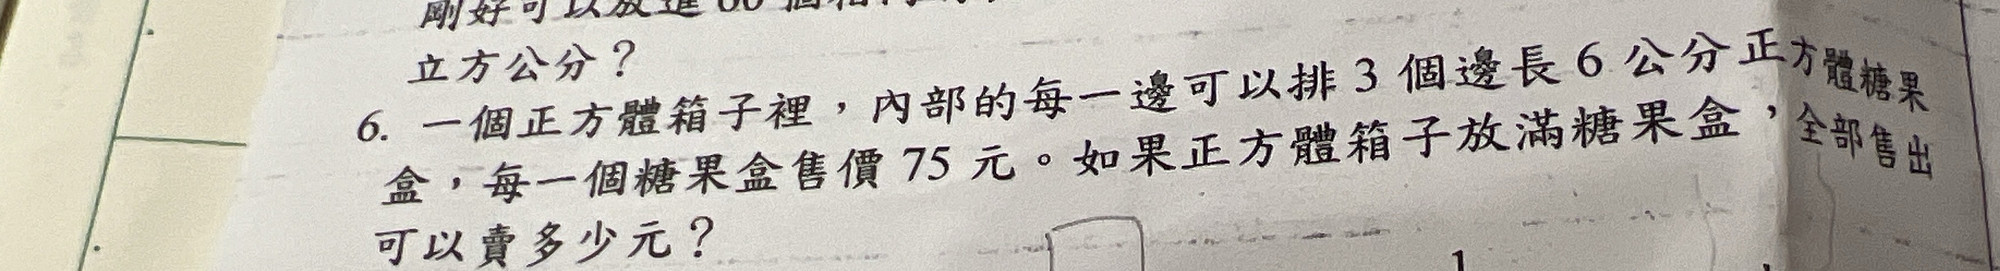 剛好可以放進60個箱
立方公分？
6. 一個正方體箱子裡，內部的每一邊可以排3個邊長6公分正方體糖果
盒，每一個糖果盒售價75元。如果正方體箱子放滿糖果盒，全部售出
可以賣多少元？
1